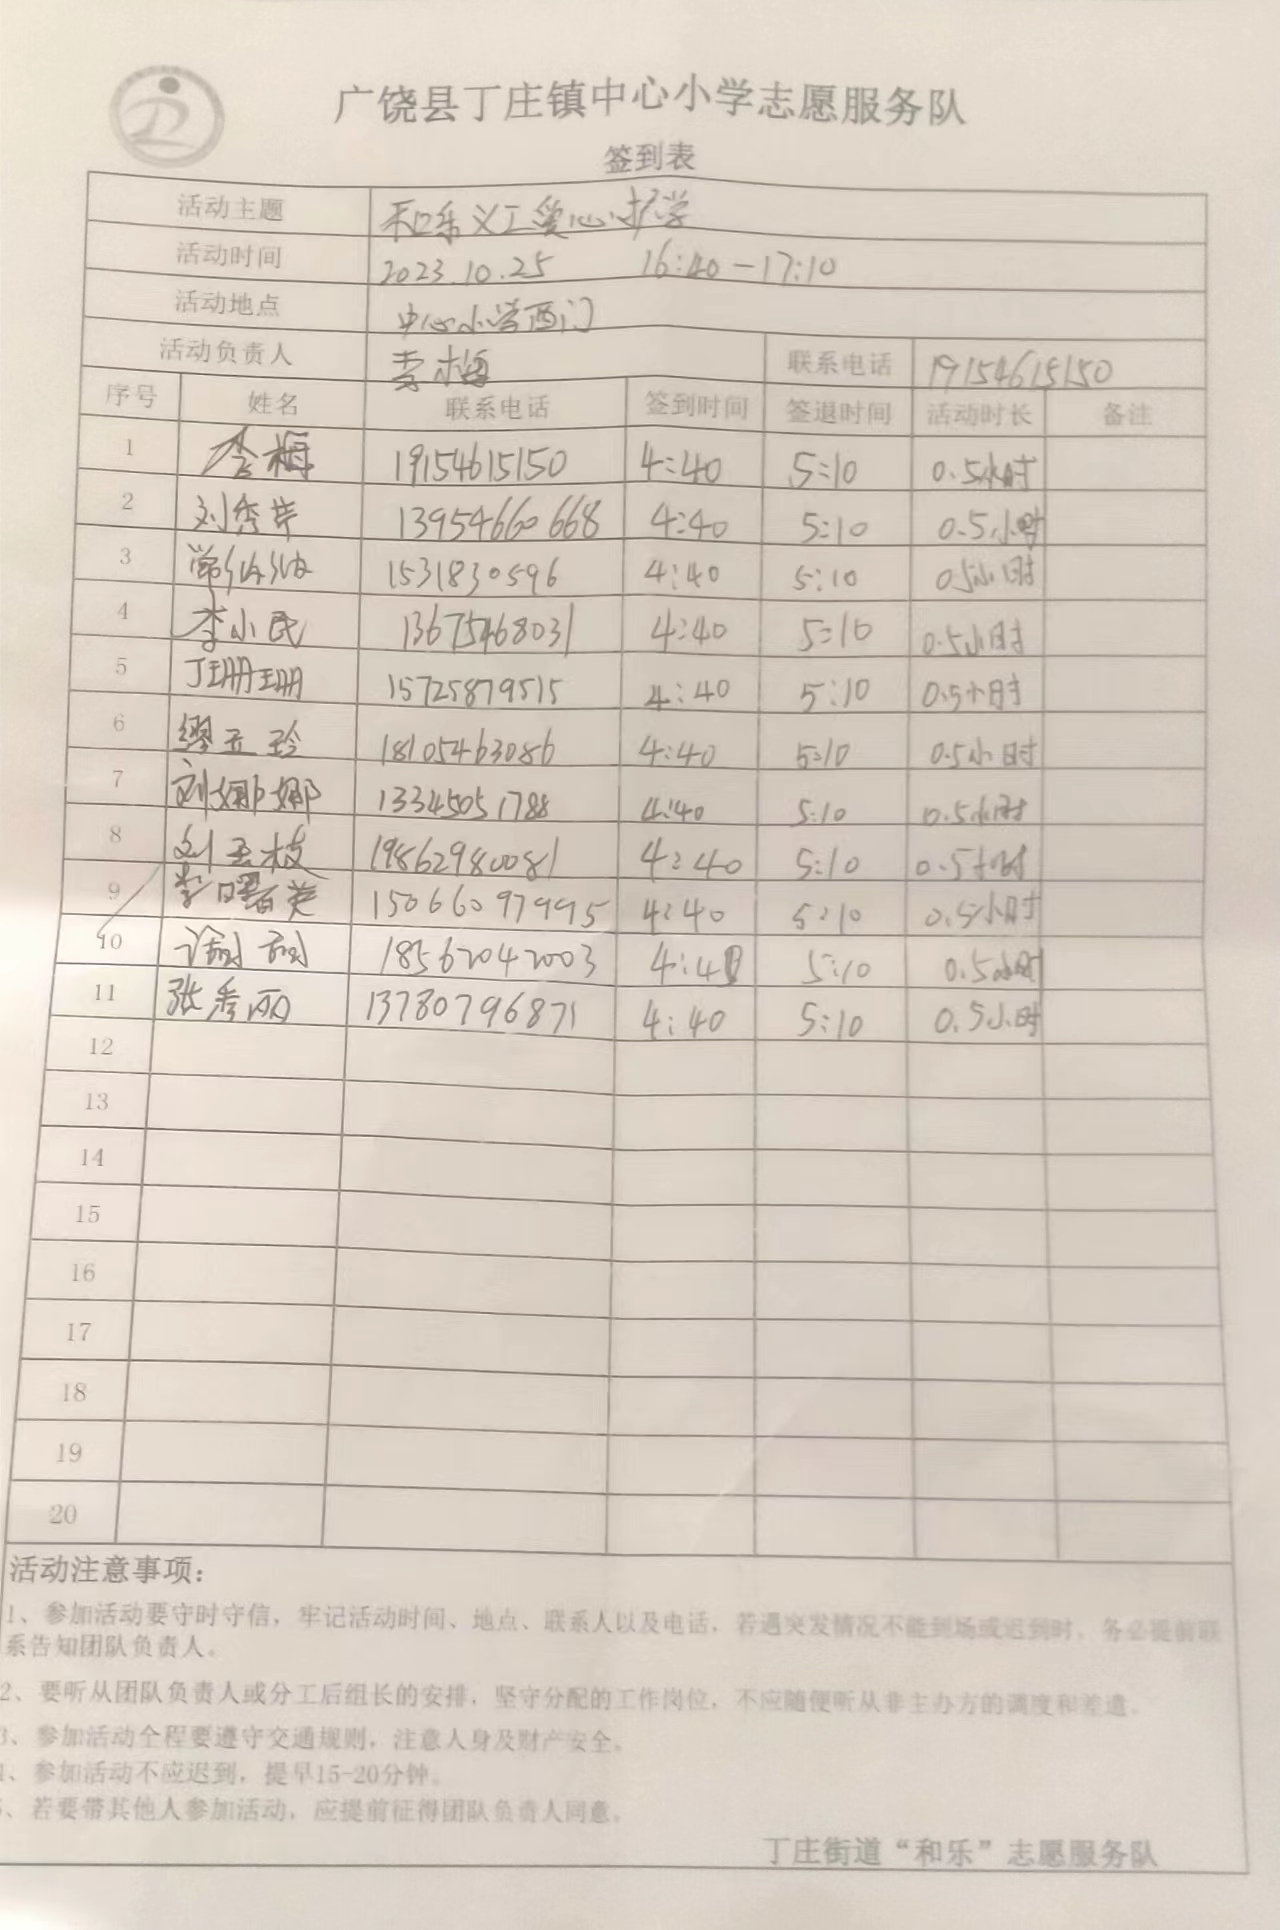 广饶县丁庄镇中心小学志愿服务队
签到表
活动主题 和乐义工爱心护学
活动时间 2023.10.25 16:40-17:10
活动地点 中心小学西门
活动负责人 李梅 联系电话 19154615150
序号 姓名 联系电话 签到时间 签退时间 活动时长 备注
1 李梅 19154615150 4:40 5:10 0.5小时
2 刘秀芹 13954660668 4:40 5:10 0.5小时
3 常 1531830596 4:40 5:10 0.5小时
4 李小民 13675468031 4:40 5:10 0.5小时
5 丁珊珊 15725879515 4:40 5:10 0.5小时
6 缪玉玲 18105463086 4:40 5:10 0.5小时
7 刘娜娜 13345051788 4:40 5:10 0.5小时
8 刘玉枝 19862980081 4:40 5:10 0.5小时
9 李曙英 15066097995 4:40 5:10 0.5小时
10 18562042003 4:40 5:10 0.5小时
11 张秀丽 13780796871 4:40 5:10 0.5小时
12
13
14
15
16
17
18
19
20
活动注意事项：
1、参加活动要守时守信，牢记活动时间、地点、联系人以及电话，若遇突发情况不能到场或迟到时，务必提前联
系告知团队负责人。
2、要听从团队负责人或分工后组长的安排，坚守分配的工作岗位，不应随便听从非主办方的调度和差遣。
3、参加活动全程要遵守交通规则，注意人身及财产安全。
4、参加活动不应迟到，提早15-20分钟。
5、若要带其他人参加活动，应提前征得团队负责人同意。
丁庄街道“和乐”志愿服务队